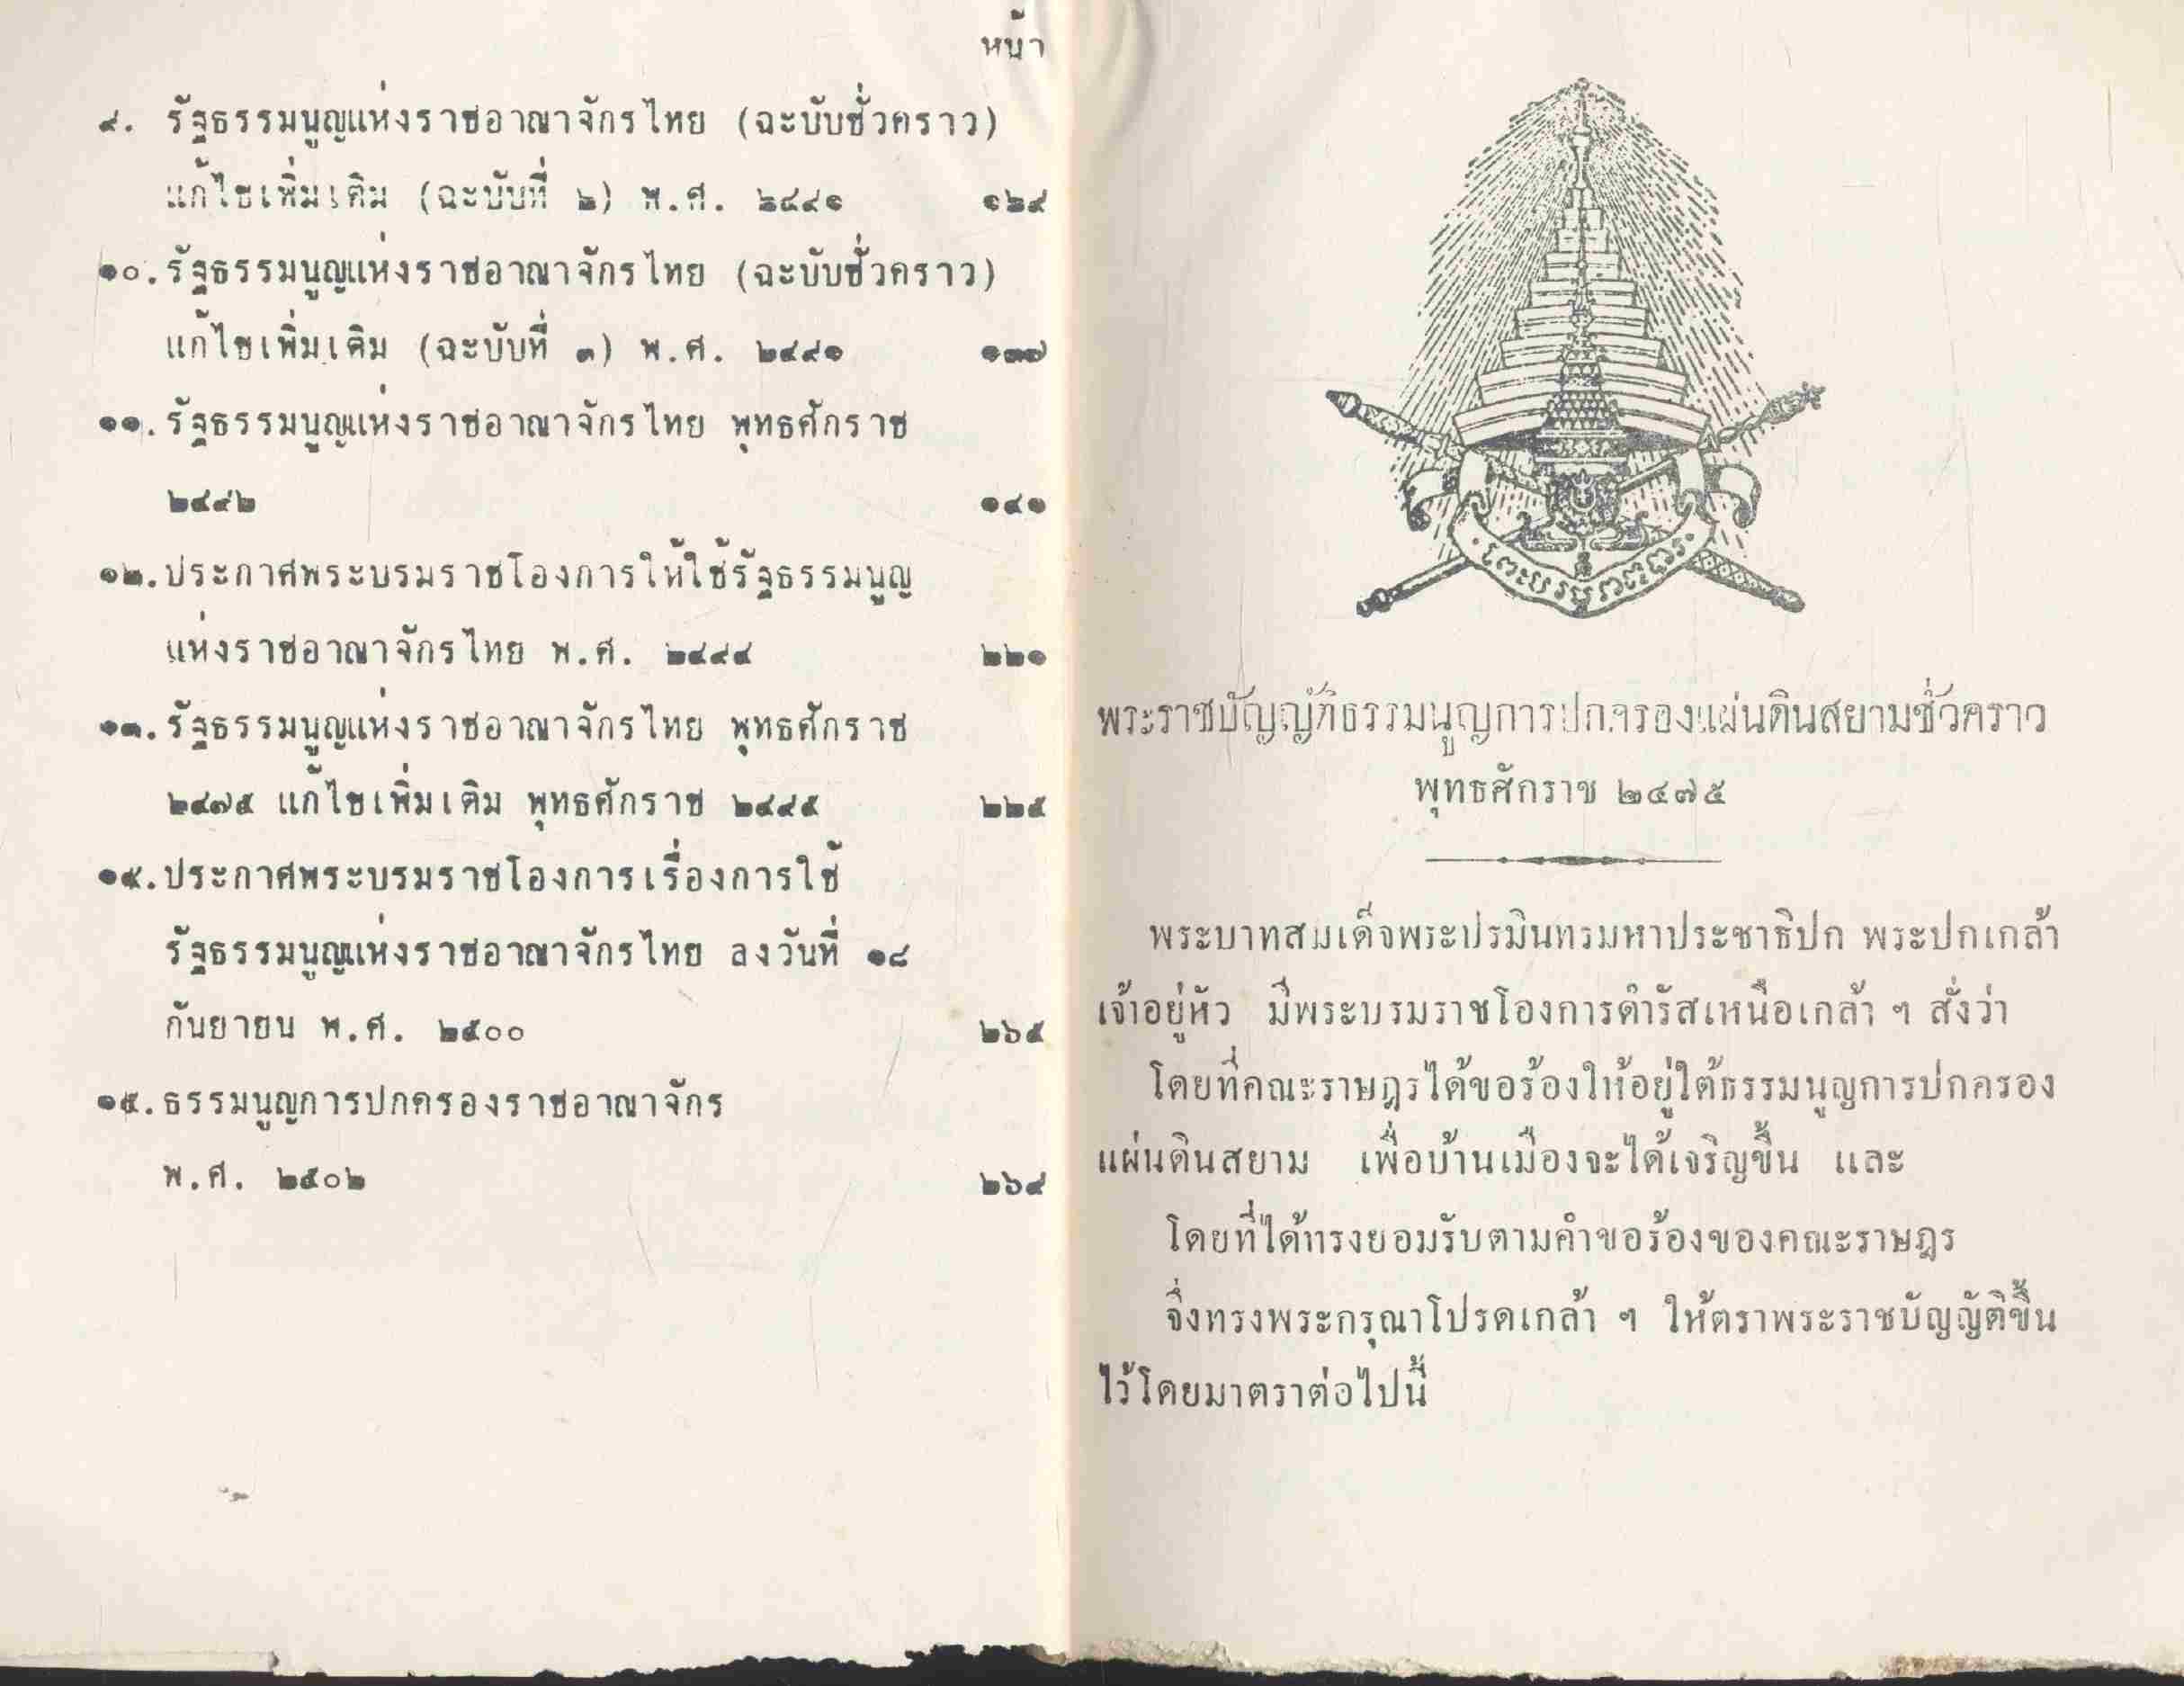 หน้า
๙. รัฐธรรมนูญแห่งราชอาณาจักรไทย (ฉะบับชั่วคราว)
แก้ไขเพิ่มเติม (ฉะบับที่ ๒) พ.ศ. ๒๔๙๑ ๑๒๙
๑๐. รัฐธรรมนูญแห่งราชอาณาจักรไทย (ฉะบับชั่วคราว)
แก้ไขเพิ่มเติม (ฉะบับที่ ๓) พ.ศ. ๒๔๙๑ ๑๓๗
๑๑. รัฐธรรมนูญแห่งราชอาณาจักรไทย พุทธศักราช
๒๔๙๒ ๑๔๑
๑๒. ประกาศพระบรมราชโองการให้ใช้รัฐธรรมนูญ
แห่งราชอาณาจักรไทย พ.ศ. ๒๔๙๔ ๒๒๑
๑๓. รัฐธรรมนูญแห่งราชอาณาจักรไทย พุทธศักราช
๒๔๗๕ แก้ไขเพิ่มเติม พุทธศักราช ๒๔๙๕ ๒๒๕
๑๔. ประกาศพระบรมราชโองการเรื่องการใช้
รัฐธรรมนูญแห่งราชอาณาจักรไทย ลงวันที่ ๑๘
กันยายน พ.ศ. ๒๕๐๐ ๒๖๕
๑๕. ธรรมนูญการปกครองราชอาณาจักร
พ.ศ. ๒๕๐๒ ๒๖๙
พระราชบัญญัติธรรมนูญการปกครองแผ่นดินสยามชั่วคราว
พุทธศักราช ๒๔๗๕
พระบาทสมเด็จพระปรมินทรมหาประชาธิปก พระปกเกล้า
เจ้าอยู่หัว มีพระบรมราชโองการดำรัสเหนือเกล้า ฯ สั่งว่า
โดยที่คณะราษฎรได้ขอร้องให้อยู่ใต้ธรรมนูญการปกครอง
แผ่นดินสยาม เพื่อบ้านเมืองจะได้เจริญขึ้น และ
โดยที่ได้ทรงยอมรับตามคำขอร้องของคณะราษฎร
จึ่งทรงพระกรุณาโปรดเกล้า ฯ ให้ตราพระราชบัญญัติขึ้น
ไว้โดยมาตราต่อไปนี้